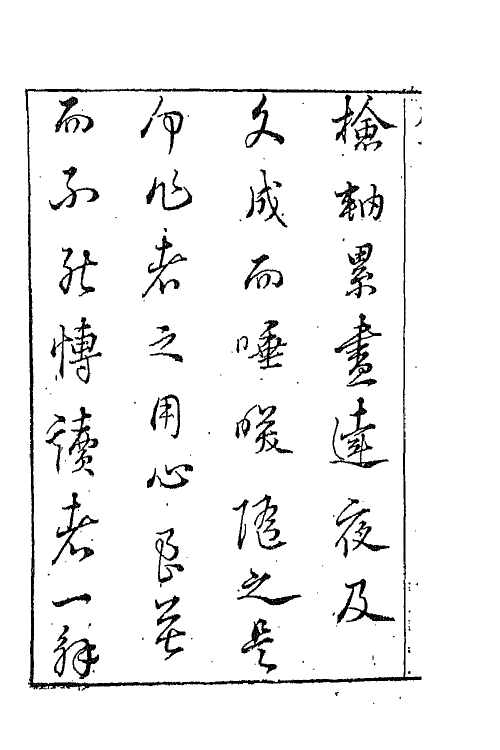 檢軸累晝達夜及
文成而唾唉隨之是
何作者之用心良苦
而不能博讀者一解